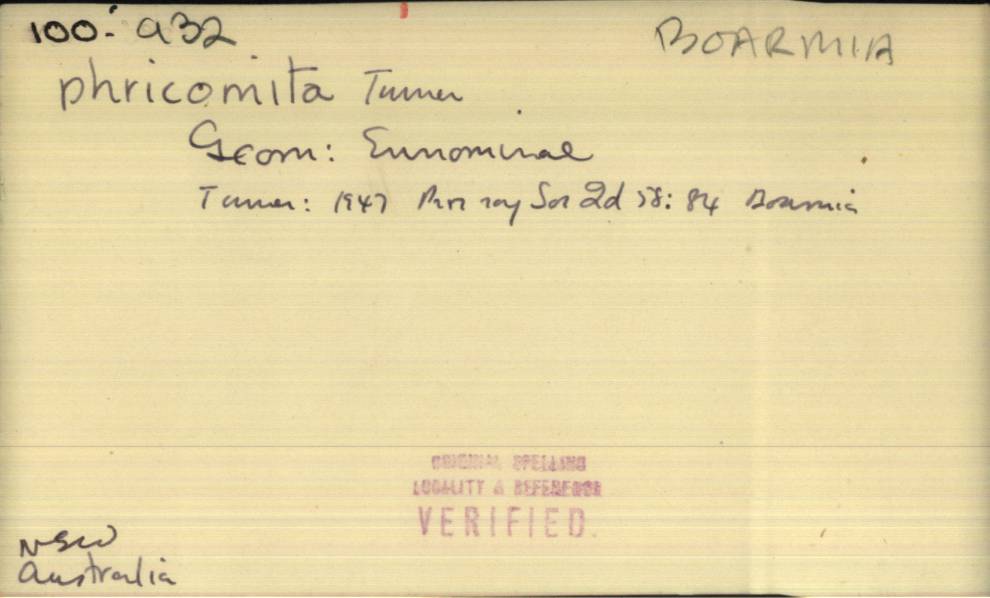 100: a32
BOARMIA
phricomita Turner
Geom: Ennominae
Turner: 1947 Proc roy Soc Qd 58: 84 Boarmia
ORIGINAL SPELLING
LOCALITY & REFERENCE
VERIFIED.
NSW
Australia